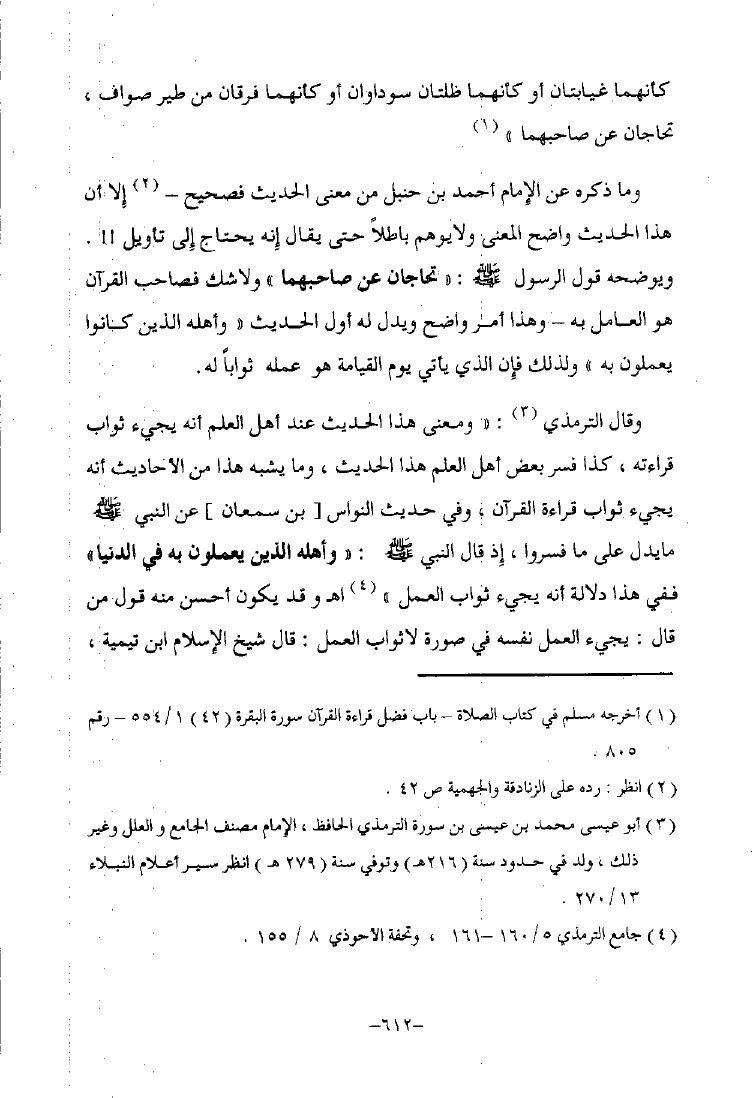 كأنهما غيابتان أو كأنهما ظلتان سوداوان أو كأنهما فرقان من طير صواف ،
تحاجان عن صاحبهما » (١)
وما ذكره عن الإمام أحمد بن حنبل من معنى الحديث فصحيح – (٢) إلا أن
هذا الحديث واضح المعنى ولايوهم باطلاً حتى يقال إنه يحتاج إلى تأويل !! .
ويوضحه قول الرسول ﷺ : « تحاجان عن صاحبهما » ولاشك فصاحب القرآن
هو العامل به – وهذا أمر واضح ويدل له أول الحديث « وأهله الذين كانوا
يعملون به » ولذلك فإن الذي يأتي يوم القيامة هو عمله ثواباً له.
وقال الترمذي (٣) : « ومعنى هذا الحديث عند أهل العلم أنه يجيء ثواب
قراءته ، كذا فسر بعض أهل العلم هذا الحديث ، وما يشبه هذا من الأحاديث أنه
يجيء ثواب قراءة القرآن ؛ وفي حديث النواس [ بن سمعان ] عن النبي ﷺ
مايدل على ما فسروا ، إذ قال النبي ﷺ : « وأهله الذين يعملون به في الدنيا»
ففي هذا دلالة أنه يجيء ثواب العمل » (٤) اهـ و قد يكون أحسن منه قول من
قال : يجيء العمل نفسه في صورة لاثواب العمل : قال شيخ الإسلام ابن تيمية ،
(١) أخرجه مسلم في كتاب الصلاة – باب فضل قراءة القرآن سورة البقرة (٤٢) ١/ ٥٥٤ – رقم
٨٠٥ .
(٢) انظر : رده على الزنادقة والجهمية ص ٤٢ .
(٣) أبو عيسى محمد بن عيسى بن سورة الترمذي الحافظ ، الإمام مصنف الجامع و العلل وغير
ذلك ، ولد في حدود سنة (٢١٦هـ) وتوفي سنة (٢٧٩ هـ) انظر سير أعلام النبلاء
٢٧٠/١٣ .
(٤) جامع الترمذي ١٦٠/٥ –١٦١ ، وتحفة الأحوذي ٨ / ١٥٥ .
–٦١٢–